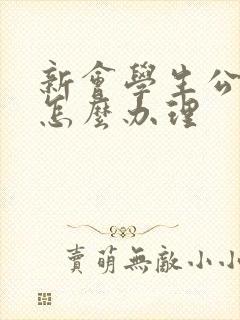 新會學生公
怎麼办理
賣萌無敵小小